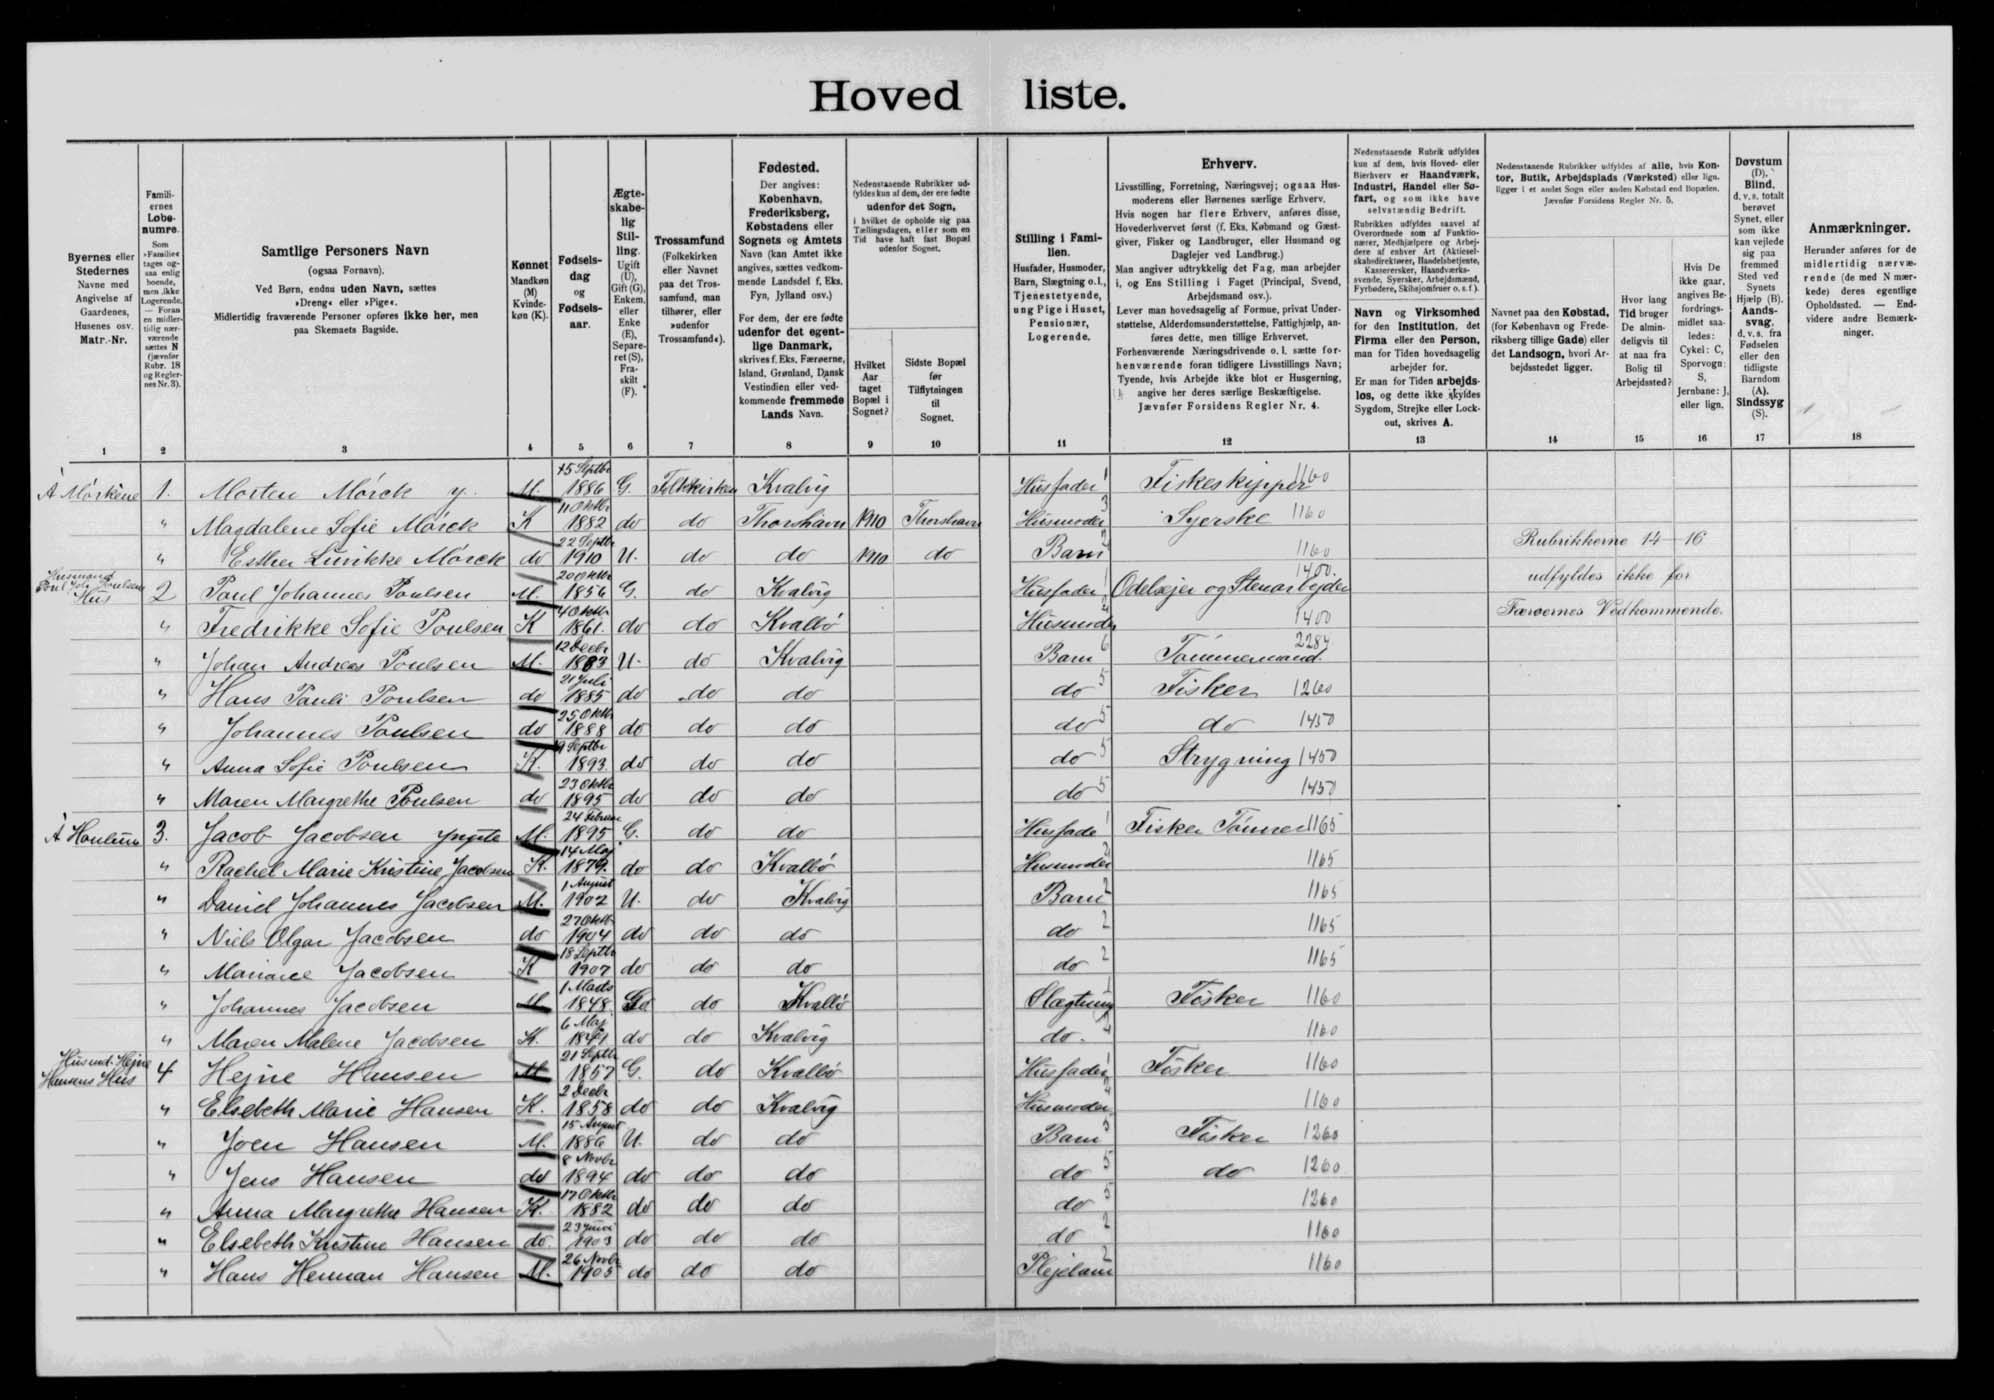 Hovedliste.
Byernes eller Stedernes Navne med Angivelse af Gaardenes, Husenes osv. Matr.-Nr.
Familiernes Løbenumre.
Som »Familie« tages ogsaa enlig boende, men ikke Logerende. — Foran en midlertidig nærværende sættes N (jævnfør Rubr. 18 og Reglernes Nr. 3).
Samtlige Personers Navn
(ogsaa Fornavn).
Ved Børn, endnu uden Navn, sættes »Dreng« eller »Pige«.
Midlertidig fraværende Personer opføres ikke her, men paa Skemaets Bagside.
Kønnet
Mandkøn (M) Kvindekøn (K).
Fødselsdag og Fødselsaar.
Ægteskabelig Stilling.
Ugift (U), Gift (G), Enkem. eller Enke (E), Separeret (S), Fraskilt (F).
Trossamfund
(Folkekirken eller Navnet paa det Trossamfund, man tilhører, eller »udenfor Trossamfund«).
Fødested.
Der angives: København, Frederiksberg, Købstadens eller Sognets og Amtets Navn (kan Amtet ikke angives, sættes vedkommende Landsdel f. Eks. Fyn, Jylland osv.)
For dem, der ere fødte udenfor det egentlige Danmark, skrives f. Eks. Færøerne, Island, Grønland, Dansk Vestindien eller vedkommende fremmede Lands Navn.
Nedenstaaende Rubrikker udfyldes kun af dem, der ere fødte udenfor det Sogn, i hvilket de opholde sig paa Tællingsdagen, eller som en Tid have haft fast Bopæl udenfor Sognet.
Hvilket Aar taget Bopæl i Sognet?
Sidste Bopæl før Tilflytningen til Sognet.
Stilling i Familien.
Husfader, Husmoder, Barn, Slægtning o. l., Tjenestetyende, ung Pige i Huset, Pensionær, Logerende.
Erhverv.
Livsstilling, Forretning, Næringsvej; ogsaa Husmoderens eller Børnenes særlige Erhverv.
Hvis nogen har flere Erhverv, anføres disse, Hovederhvervet først (f. Eks. Købmand og Gæstgiver, Fisker og Landbruger, eller Husmand og Daglejer ved Landbrug.)
Man angiver udtrykkelig det Fag, man arbejder i, og Ens Stilling i Faget (Principal, Svend, Arbejdsmand osv.).
Lever man hovedsagelig af Formue, privat Understøttelse, Alderdomsunderstøttelse, Fattighjælp, anføres dette, men tillige Erhvervet.
Forhenværende Næringsdrivende o. l. sætte forhenværende foran tidligere Livsstillings Navn; Tyende, hvis Arbejde ikke blot er Husgerning, angive her deres særlige Beskæftigelse.
Jævnfør Forsidens Regler Nr. 4.
Nedenstaaende Rubrik udfyldes kun af dem, hvis Hoved- eller Bierhverv er Haandværk, Industri, Handel eller Søfart, og som ikke have selvstændig Bedrift.
Rubrikken udfyldes saavel af Overordnede som af Funktionærer, Medhjælpere og Arbejdere af enhver Art (Aktieselskabsdirektører, Handelsbetjente, Kassererske, Haandværkssvende, Syersker, Arbejdsmænd, Fyrbødere, Skibsjomfruer o. s. f.).
Navn og Virksomhed for den Institution, det Firma eller den Person, man for Tiden hovedsagelig arbejder for.
Er man for Tiden arbejdsløs, og dette ikke skyldes Sygdom, Strejke eller Lockout, skrives A.
Nedenstaaende Rubrikker udfyldes af alle, hvis Kontor, Butik, Arbejdsplads (Værksted) eller lign. ligger i et andet Sogn eller anden Købstad end Bopælen.
Jævnfør Forsidens Regler Nr. 5.
Navnet paa den Købstad, (for København og Frederiksberg tillige Gade) eller det Landsogn, hvori Arbejdsstedet ligger.
Hvor lang Tid bruger De almindeligvis til at naa fra Bolig til Arbejdssted?
Hvis De ikke gaar, angives Befordringsmidlet saaledes: Cykel: C, Sporvogn: S, Jernbane: J, eller lign.
Døvstum (D), Blind, d. v. s. totalt berøvet Synet, eller som ikke kan vejlede sig paa fremmed Sted ved Synets Hjælp (B). Aandssvag, d. v. s. fra Fødselen eller den tidligste Barndom (A). Sindssyg (S).
Anmærkninger.
Herunder anføres for de midlertidig nærværende (de med N mærkede) deres egentlige Opholdssted. — Endvidere andre Bemærkninger.
1 2 3 4 5 6 7 8 9 10 11 12 13 14 15 16 17 18
Á Mørkene 1. Morten Mørck y. M. 15 Septbr 1886 G. Folkekirken Kvalvig Husfader 1 Fiskeskipper 1160
" Magdalene Sofie Mørck K 11 Oktbr 1882 do do Thorshavn 1910 Thorshavn Husmoder 3 Syerske 1160
" Esther Lunikke Mørck do 22 Septbr 1910 U. do do 1910 do Barn 2 1160
Rubrikkerne 14–16
udfyldes ikke for
Færøernes Vedkommende.
Husmand Poul Joh. Poulsens Hus 2 Poul Johannes Poulsen M. 20 Oktbr 1856 G. do Kvalvig Husfader 1 Odelsejer og Stenarbejder 1400.
" Fredrikke Sofie Poulsen K 4 Oktbr 1861. do do Kvalbø Husmoder 4 1400
" Johan Andreas Poulsen M. 12 Decbr 1883 U. do Kvalvig Barn 6 Tømmermand. 2284
" Hans Pauli Poulsen do 21 Juli 1885 do do do do 5 Fisker 1260
" Johannes Poulsen do 25 Oktbr 1888 do do do do 5 do 1450
" Anna Sofie Poulsen K. 9 Septbr 1893 do do do do 5 Strygning 1450
" Maren Margrethe Poulsen do 23 Oktbr 1895 do do do do 5 1450
Á Hanlum 3. Jacob Jacobsen yngste M. 24 Februar 1895 G. do do Husfade 1 Fisker Tømrer 1165
" Rachel Marie Kristine Jacobsen K. 14 Maj 1879. do do Kvalbø Husmoder 1165
" Daniel Johannes Jacobsen M. 1 August 1902 U. do Kvalvig Barn 2 1165
" Niels Olgar Jacobsen do 27 Oktbr 1904 do do do do 2 1165
" Mariane Jacobsen K 18 Septbr 1907 do do do do 2 1165
" Johannes Jacobsen M 1 Marts 1848. do Kvalbø Slægtning Fisker 1160
" Maren Malene Jacobsen K. 6 Maj 1841 do do Kvalvig do. 4 1160
Husmd. Hejne Hansens Hus 4 Hejne Hansen M 21 Septbr 1857 G. do Kvalbø Husfader 1 Fisker 1160
" Elsebeth Marie Hansen K. 2 Decbr 1858 do do Kvalvig Husmoder 4 1160
" Joen Hansen M. 15 August 1886 U. do do Barn Fisker 1260
" Jens Hansen do 8 Novbr 1894 do do do do 5 do 1260
" Anna Margrethe Hansen K. 17 Oktbr 1882 do do do do 5 1260
" Elsebeth Kristine Hansen do. 23 Juni 1903 do do do do 2 1160
" Hans Herman Hansen M. 26 Novbr 1905 do do do Plejebarn 2 1160